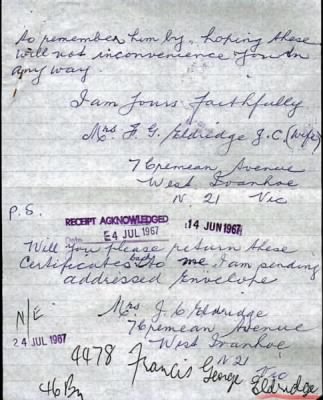 to remember him by, hoping these
will not inconvenience you in
any way.
I am Yours Faithfully
Mrs F. G. Eldridge J.C. (Wife)
7 Cremean Avenue
West Ivanhoe
N. 21 Vic
P.S.
RECEIPT ACKNOWLEDGED
14 JUN 1967
E4 JUL 1967
Will you please return these
Certificates back to me I am sending
addressed Envelope
N/E
Mrs J. C Eldridge
7 Cremean Avenue
West Ivanhoe
N 21
Vic
24 JUL 1967
4478 Francis George Eldridge
46 Bn